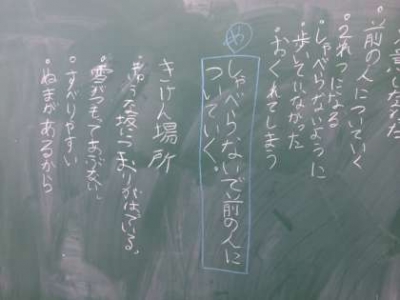 ・前の人についていく
・2れつになる
・しゃべらないように
・歩いていなかった
・おくれてしまう
め
しゃべらないで前の人に
ついていく。
きけん場所
・雪がつもってあぶない。
・すべりやすい
・ぬまがあるから